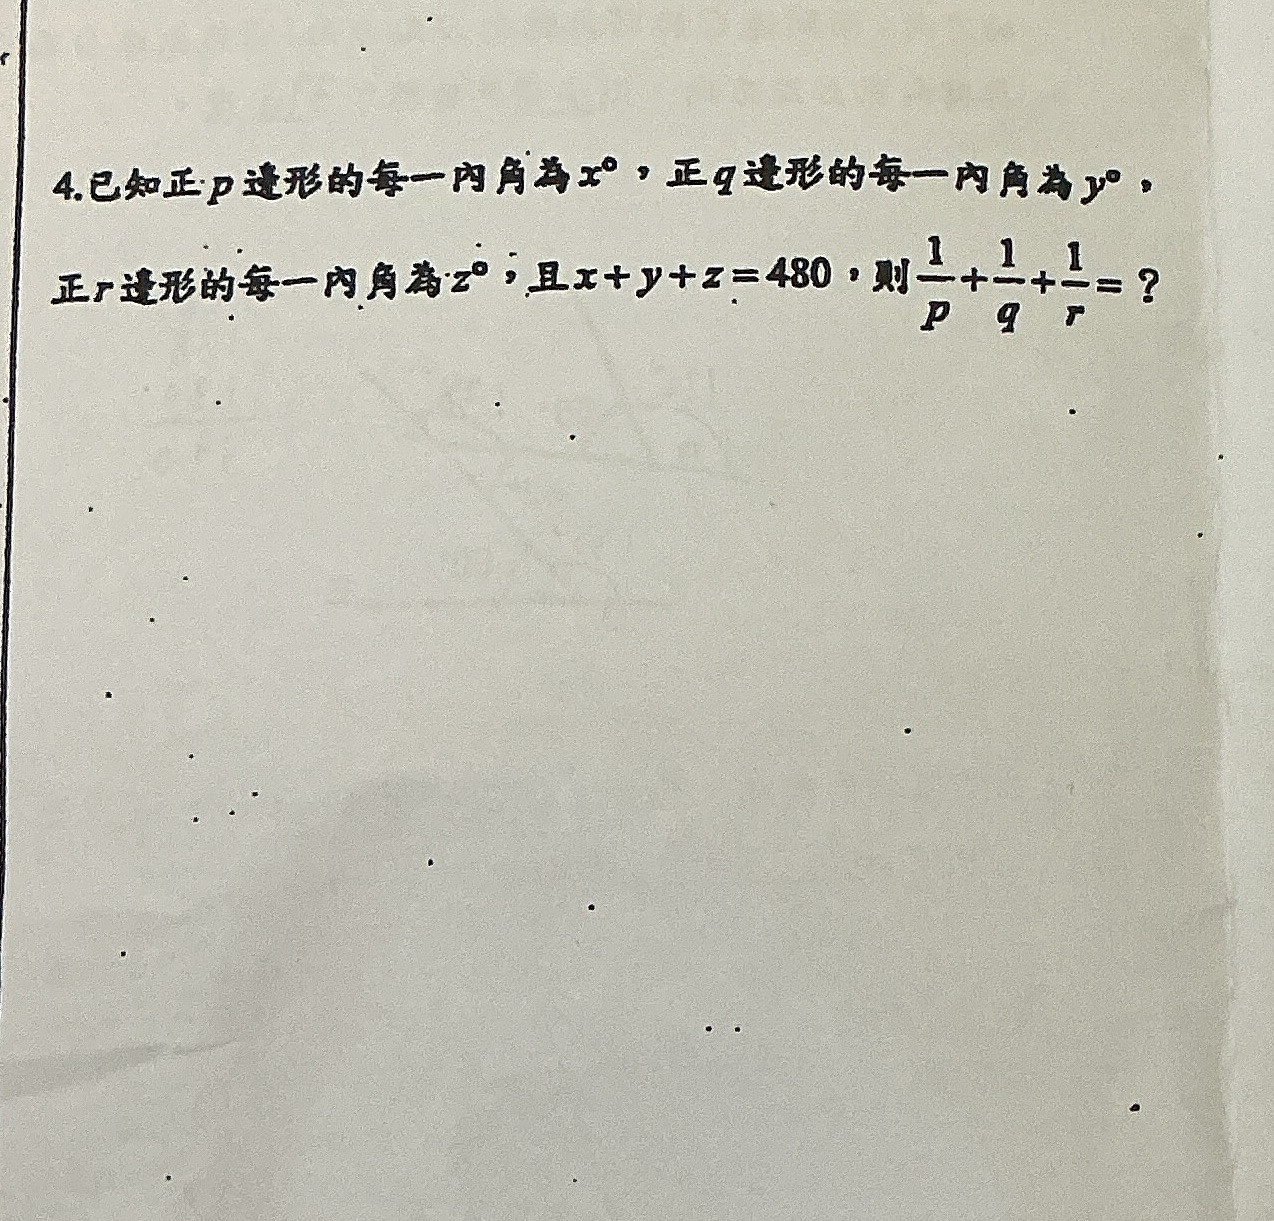 4.已知正p邊形的每一內角為x°，正q邊形的每一內角為y°，
正r邊形的每一內角為z°，且x+y+z=480，則1/p+1/q+1/r=？